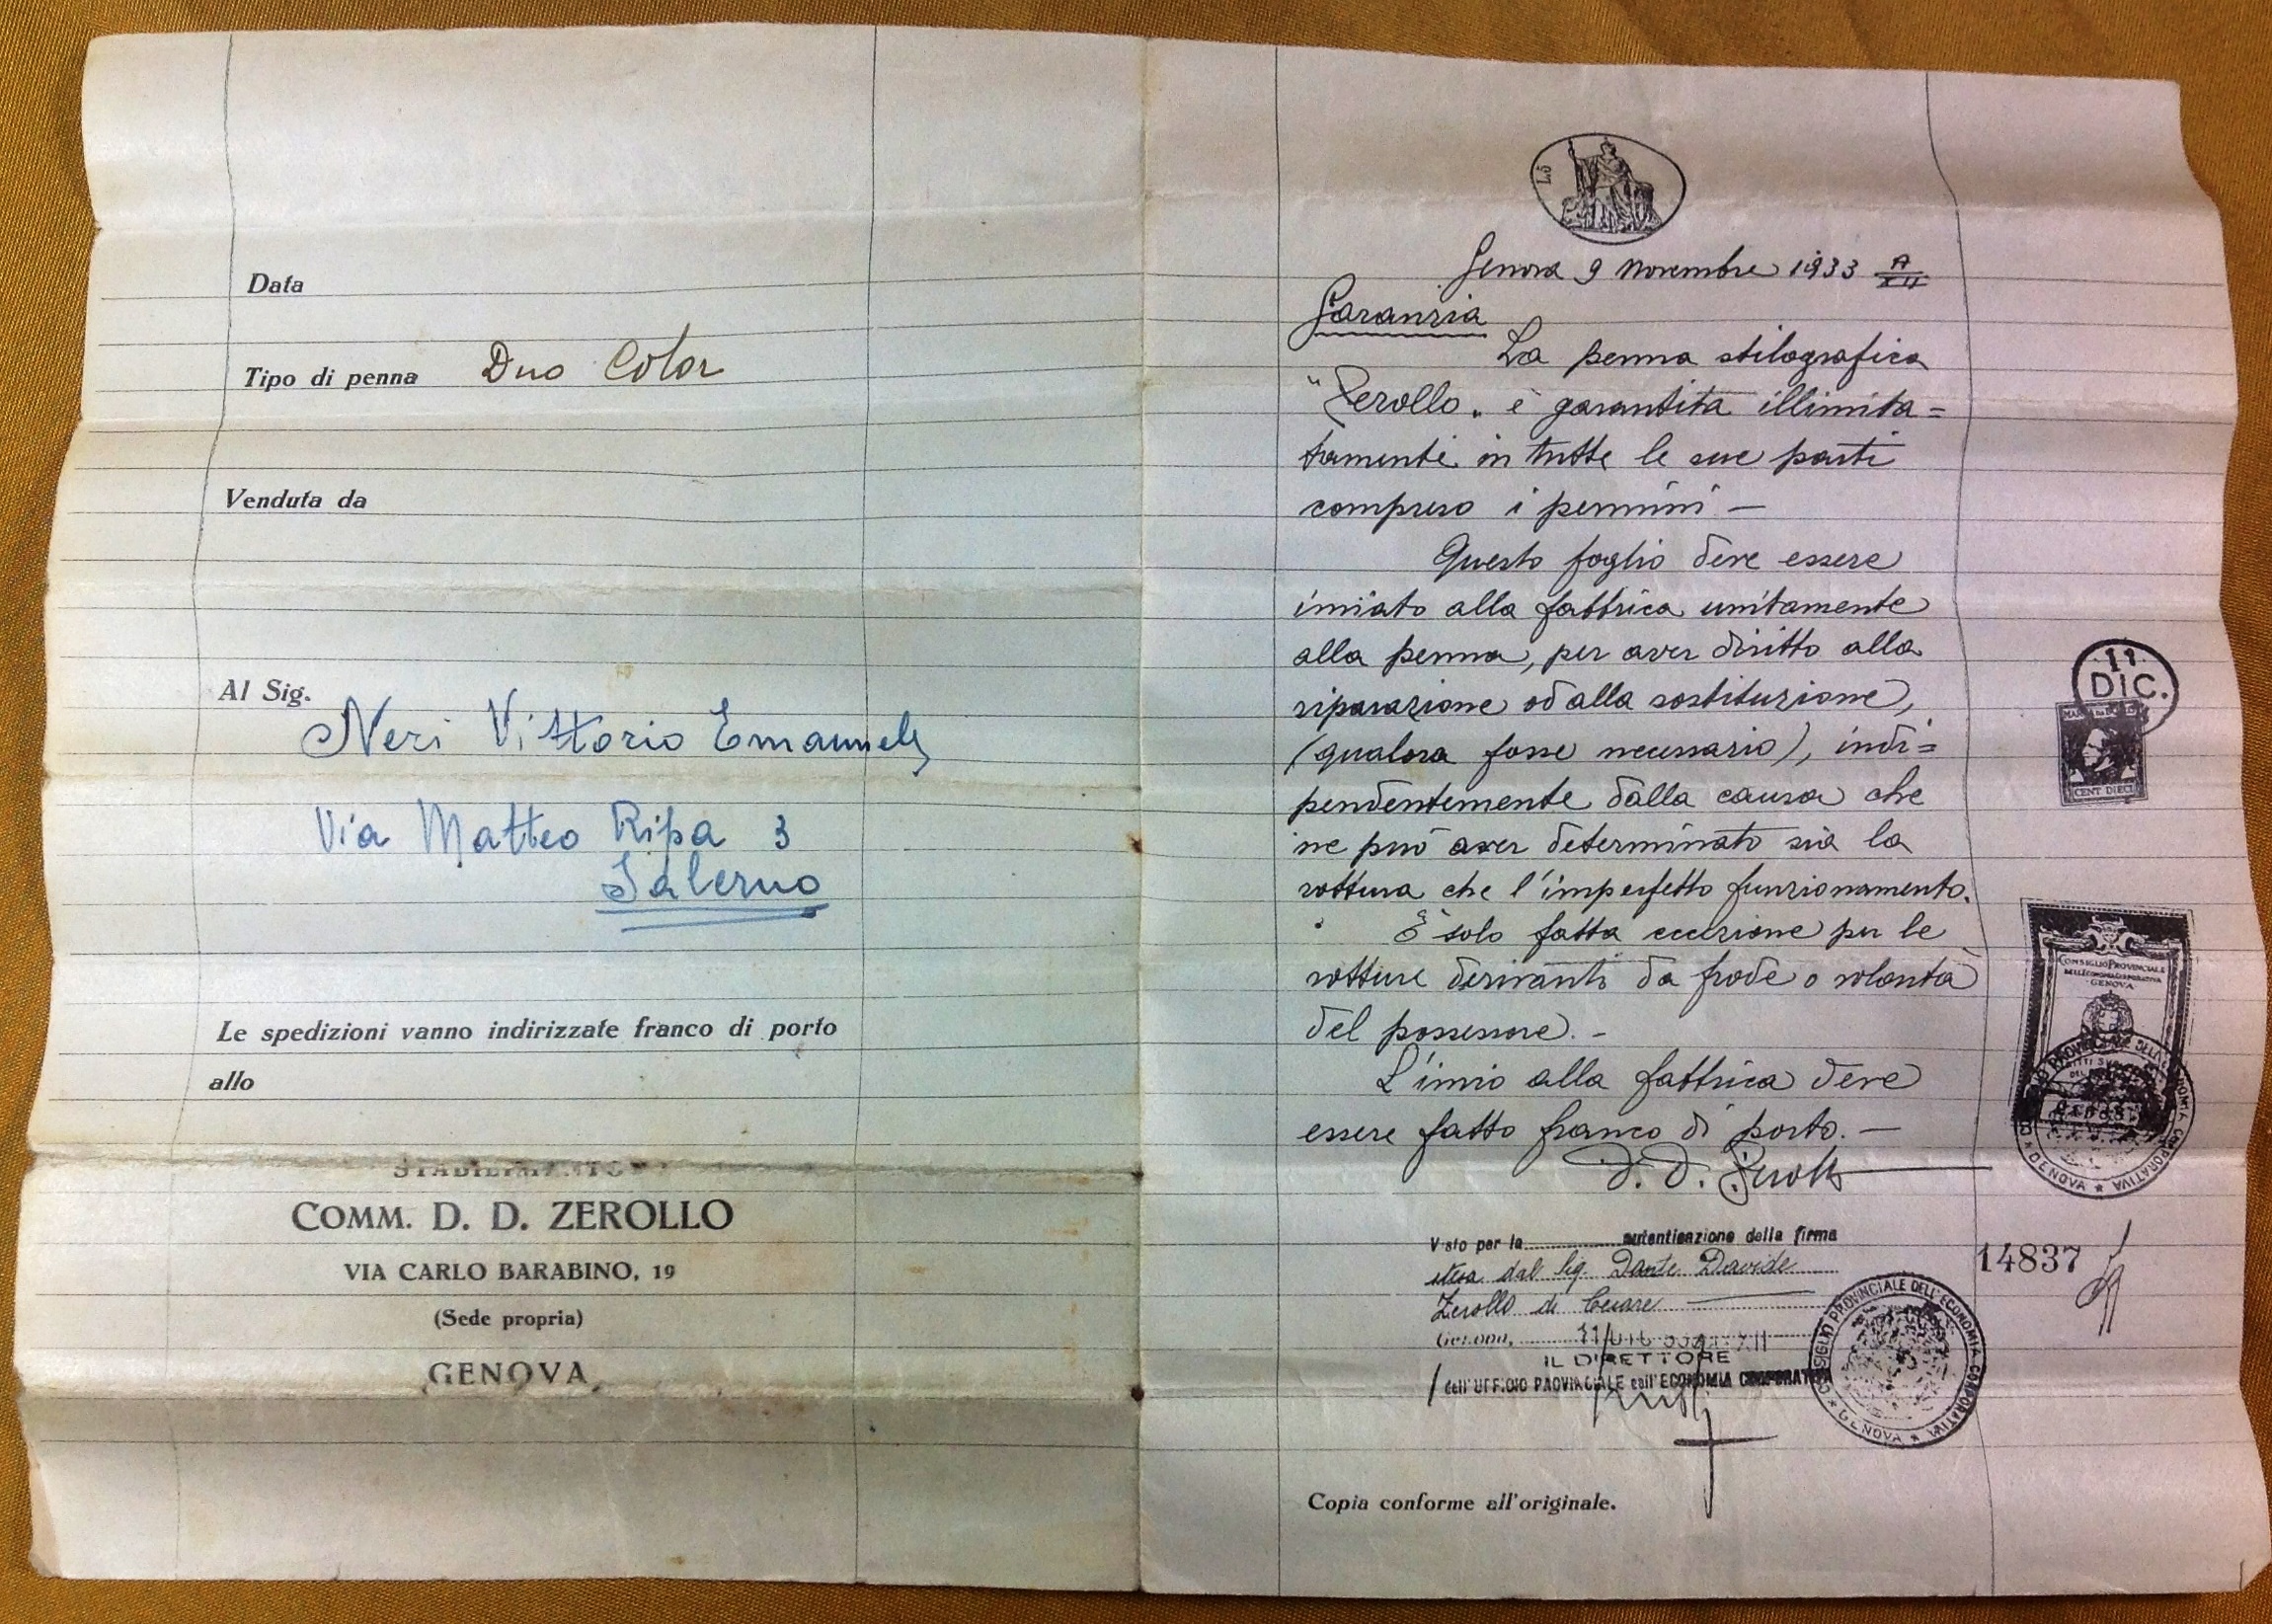 Data
Tipo di penna Duo Color
Venduta da
Al Sig.
Neri Vittorio Emanuele
Via Matteo Ripa 3
Salerno
Le spedizioni vanno indirizzate franco di porto
allo
STABILIMENTO
COMM. D. D. ZEROLLO
VIA CARLO BARABINO, 19
(Sede propria)
GENOVA
L.5
Genova 9 Novembre 1933 A XII
Garanzia
La penna stilografica
"Zerollo" è garantita illimita=
tamente in tutte le sue parti
compreso i pennini —
Questo foglio deve essere
inviato alla fabbrica unitamente
alla penna, per aver diritto alla
riparazione od alla sostituzione,
(qualora fosse necessario), indi=
pendentemente dalla causa che
ne può aver determinato sia la
rottura che l'imperfetto funzionamento.
È solo fatta eccezione per le
rotture derivanti da frode o volontà
del possessore. -
L'invio alla fabbrica deve
essere fatto franco di porto. —
D. D. Zerollo
Visto per la autenticazione della firma
stesa dal Sig. Dante Davide
Zerollo di Cesare
Genova, 11 DIC
IL DIRETTORE
dell'UFFICIO PROVINCIALE dell'ECONOMIA CORPORATIVA
CONSIGLIO PROVINCIALE DELL'ECONOMIA CORPORATIVA
GENOVA
Copia conforme all'originale.
11
DIC.
CENT DIECI
CONSIGLIO PROVINCIALE
DELL'ECONOMIA CORPORATIVA
GENOVA
PROVINCIALE DELL'ECONOMIA CORPORATIVA
GENOVA
14837